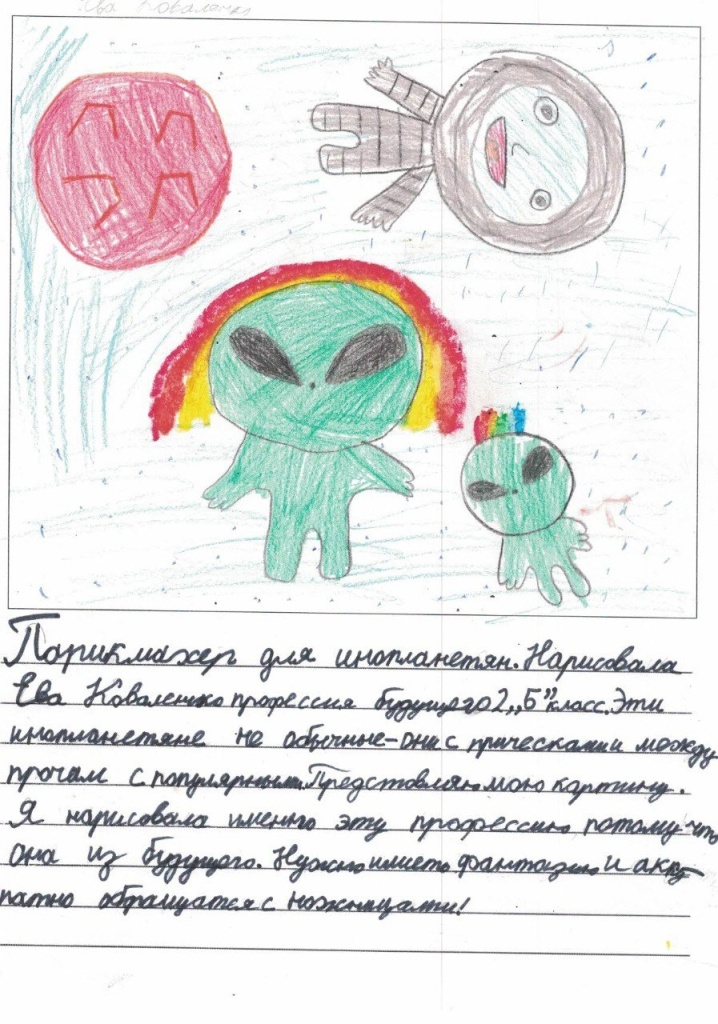 Ева Коваленко
Парикмахер для инопланетян. Нарисовала
Ева Коваленко профессия будущего 2 „Б” класс. Эти
инопланетяне не обычные - они с прическами между
прочам с популярными. Представляю мою картину.
Я нарисовала именно эту профессию потому-что
она из будущего. Нужно иметь фантазию и акку-
ратно обращатся с ножницами!